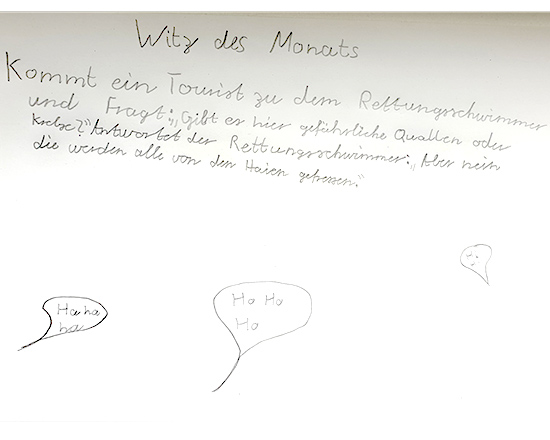 Witz des Monats
Kommt ein Tourist zu dem Rettungsschwimmer
und Fragt: „Gibt es hier gefährliche Quallen oder
Krebse?" Antwortet der Rettungsschwimmer: „Aber nein
die werden alle von den Haien gefressen."
Ha ha
ha
Ho Ho
Ho